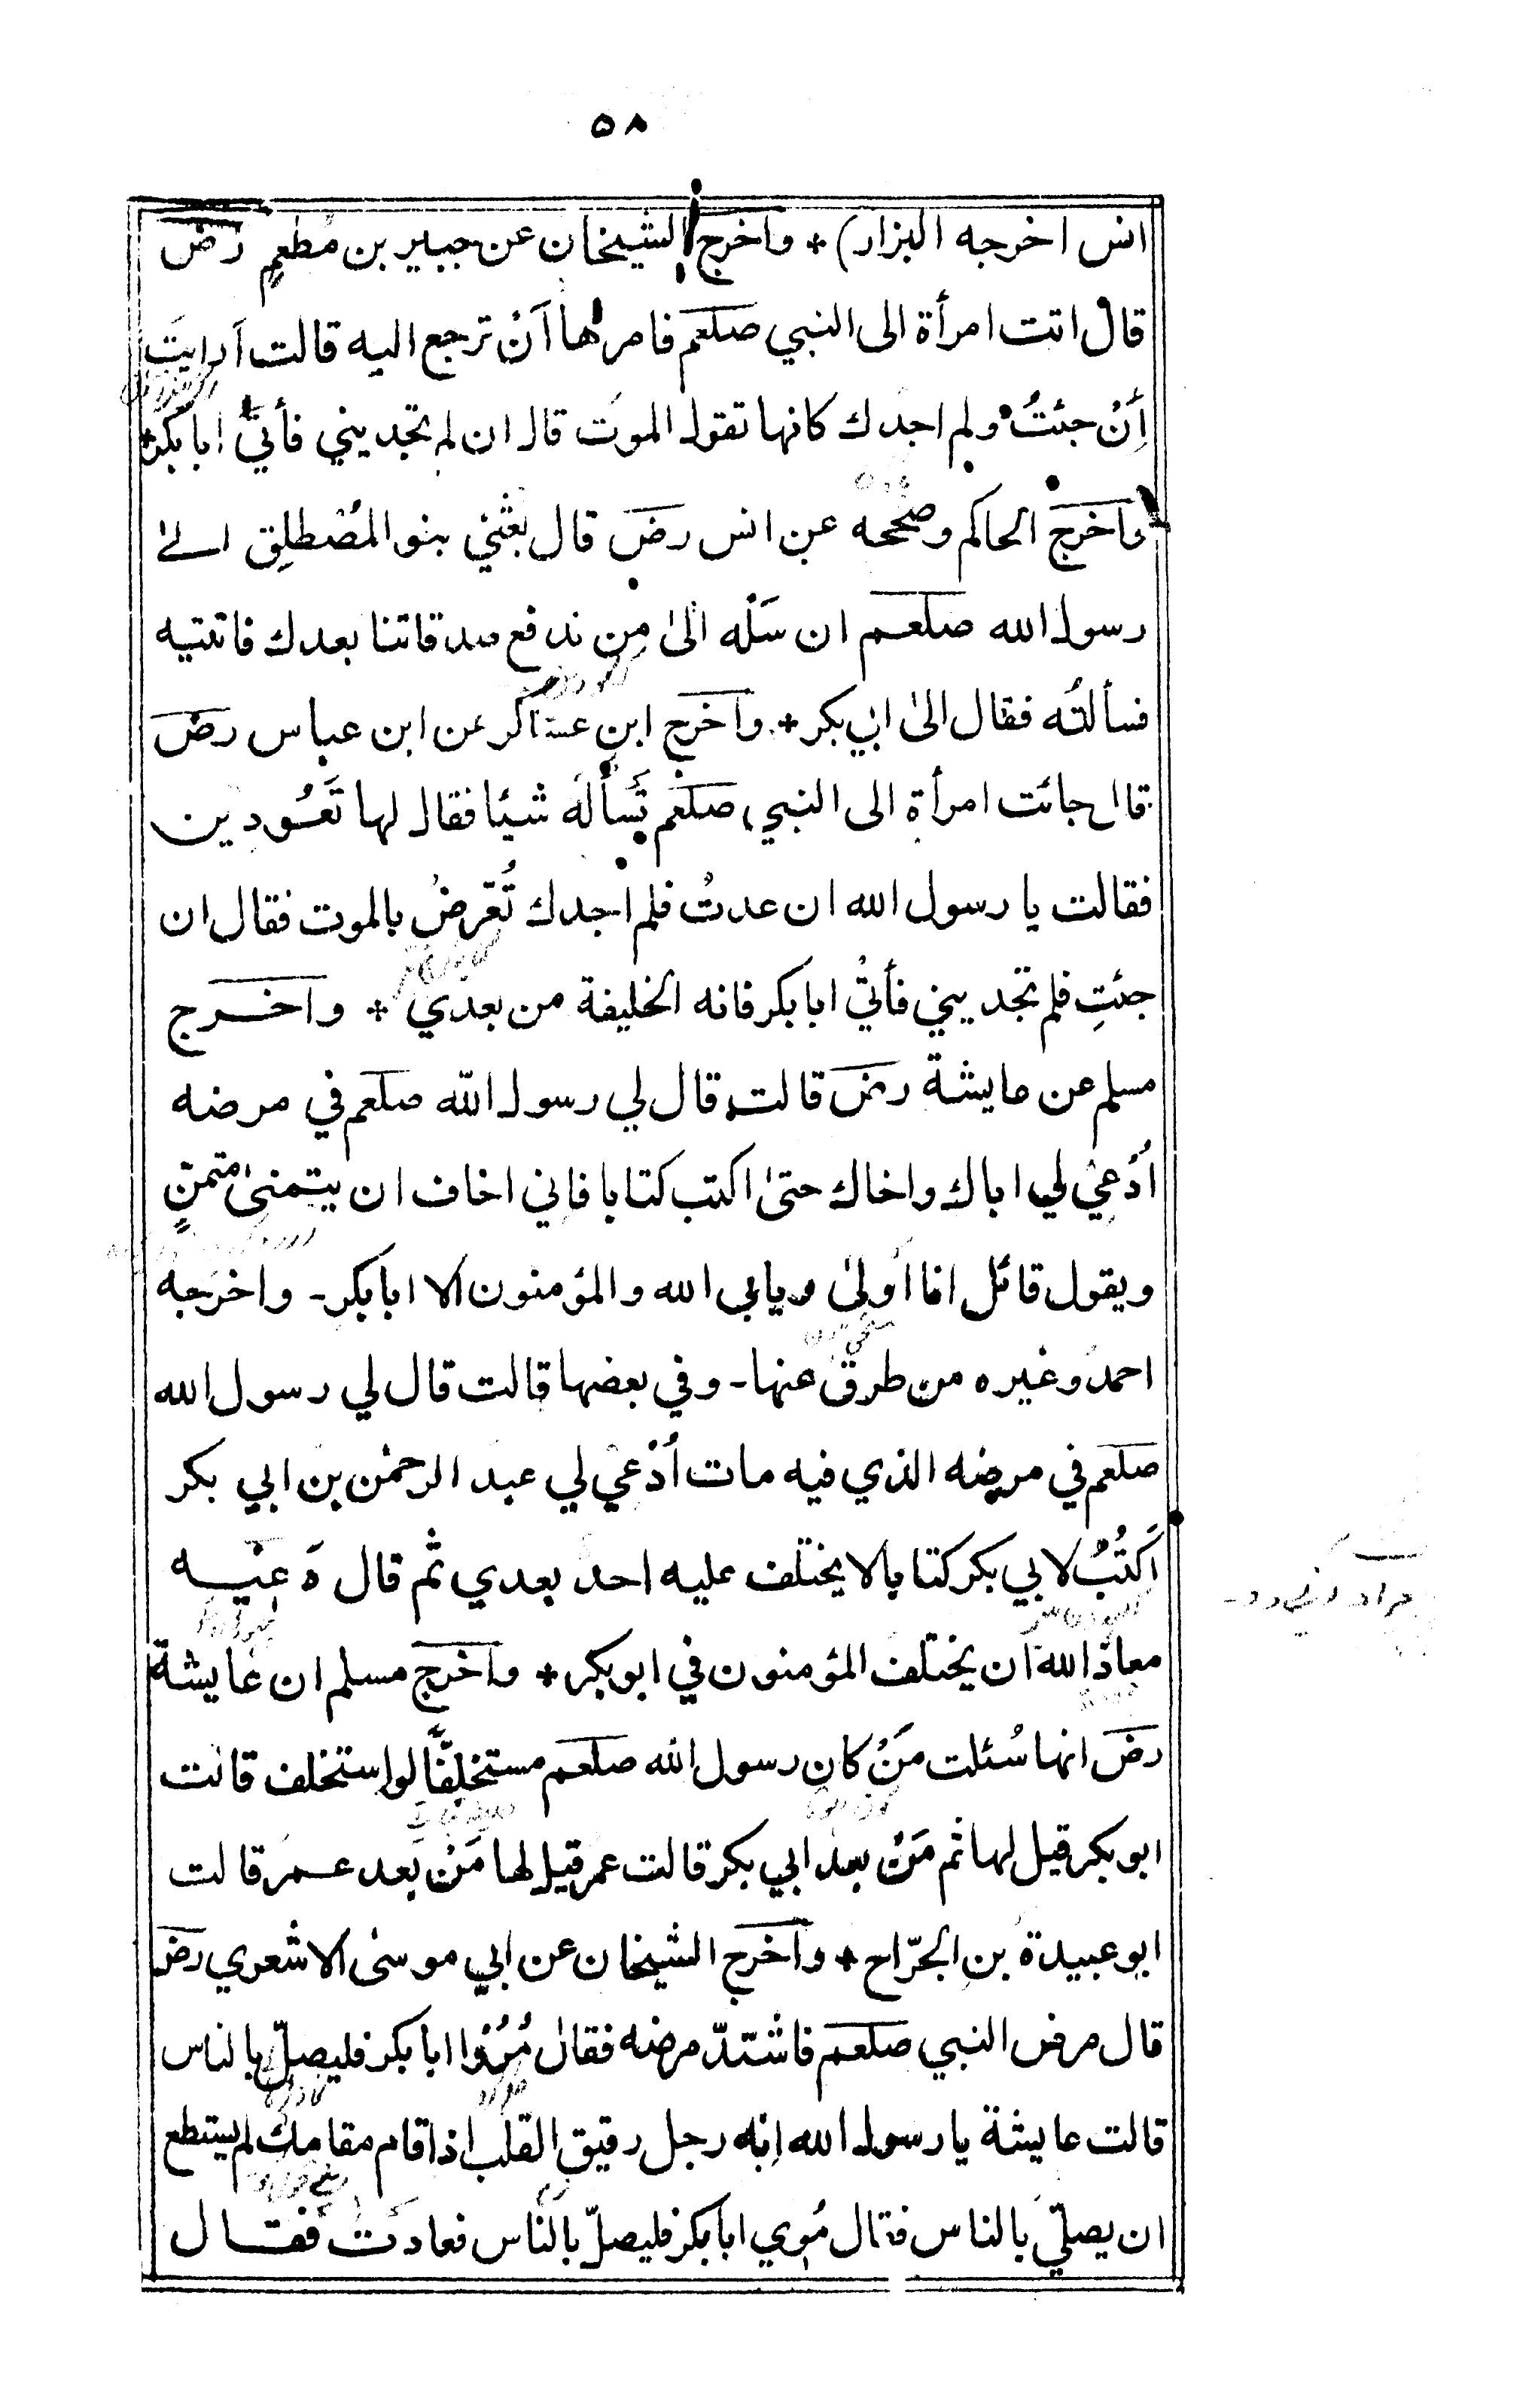 ٥٨
انس اخرجه البزار) * واخرج الشيخان عن جبير بن مطعم رض
قال اتت امرأة الى النبي صلعم فامرها اَنْ ترجع اليه قالت اَرايتَ
أِنْ جئتُ ولم اجدك كانها تقول الموت قال ان لم تجديني فأتي ابابكر *
واخرج الحاكم وصححه عن انس رض قال بعثني بنو المُصْطلِق الىٰ
رسول الله صلعم ان سَلْه الىٰ من ندفع صدقاتنا بعدك فاتيته
فسألتُه فقال الىٰ ابي بكر * واخرج ابن عساكر عن ابن عباس رض
قال جائت امرأة الى النبي صلعم تَسأله شيئا فقال لها تَعُودين
فقالت يا رسول الله ان عدتُ فلم اجدك تُعَرّضُ بالموت فقال ان
جئتِ فلم تجديني فأتي ابابكر فانه الخليفة من بعدي * واخرج
مسلم عن عايشة رض قالت قال لي رسول الله صلعم في مرضه
اُدْعِيْ لي اباك واخاك حتىٰ اكتب كتابا فاني اخاف ان يتمنىٰ متمنٍ
ويقول قائل انا اَولىٰ ويابى الله والمؤمنون الا ابابكر - واخرجه
احمد وغيره من طرق عنها - وفي بعضها قالت قال لي رسول الله
صلعم في مرضه الذي فيه مات اُدْعِيْ لي عبد الرحمٰن بن ابي بكر
اَكتُبْ لابي بكر كتابا لا يختلف عليه احد بعدي ثم قال دَعِيْه
معاذ الله ان يختلف المؤمنون في ابوبكر * واخرج مسلم ان عايشة
رض انها سُئلت مَنْ كان رسول الله صلعم مستخلِفًا لو استخلف قالت
ابوبكر قيل لها ثم مَنْ بعد ابي بكر قالت عمر قيل لها مَنْ بعد عمر قالت
ابو عبيدة بن الجرّاح * واخرج الشيخان عن ابي موسىٰ الاشعري رض
قال مرض النبي صلعم فاشتدّ مرضه فقال مُرُوْا ابابكر فليصلّ بالناس
قالت عايشة يا رسول الله انه رجل رقيق القلب اذا قام مقامك لم يستطع
ان يصلّي بالناس فقال مُري ابابكر فليصلّ بالناس فعادت فقال